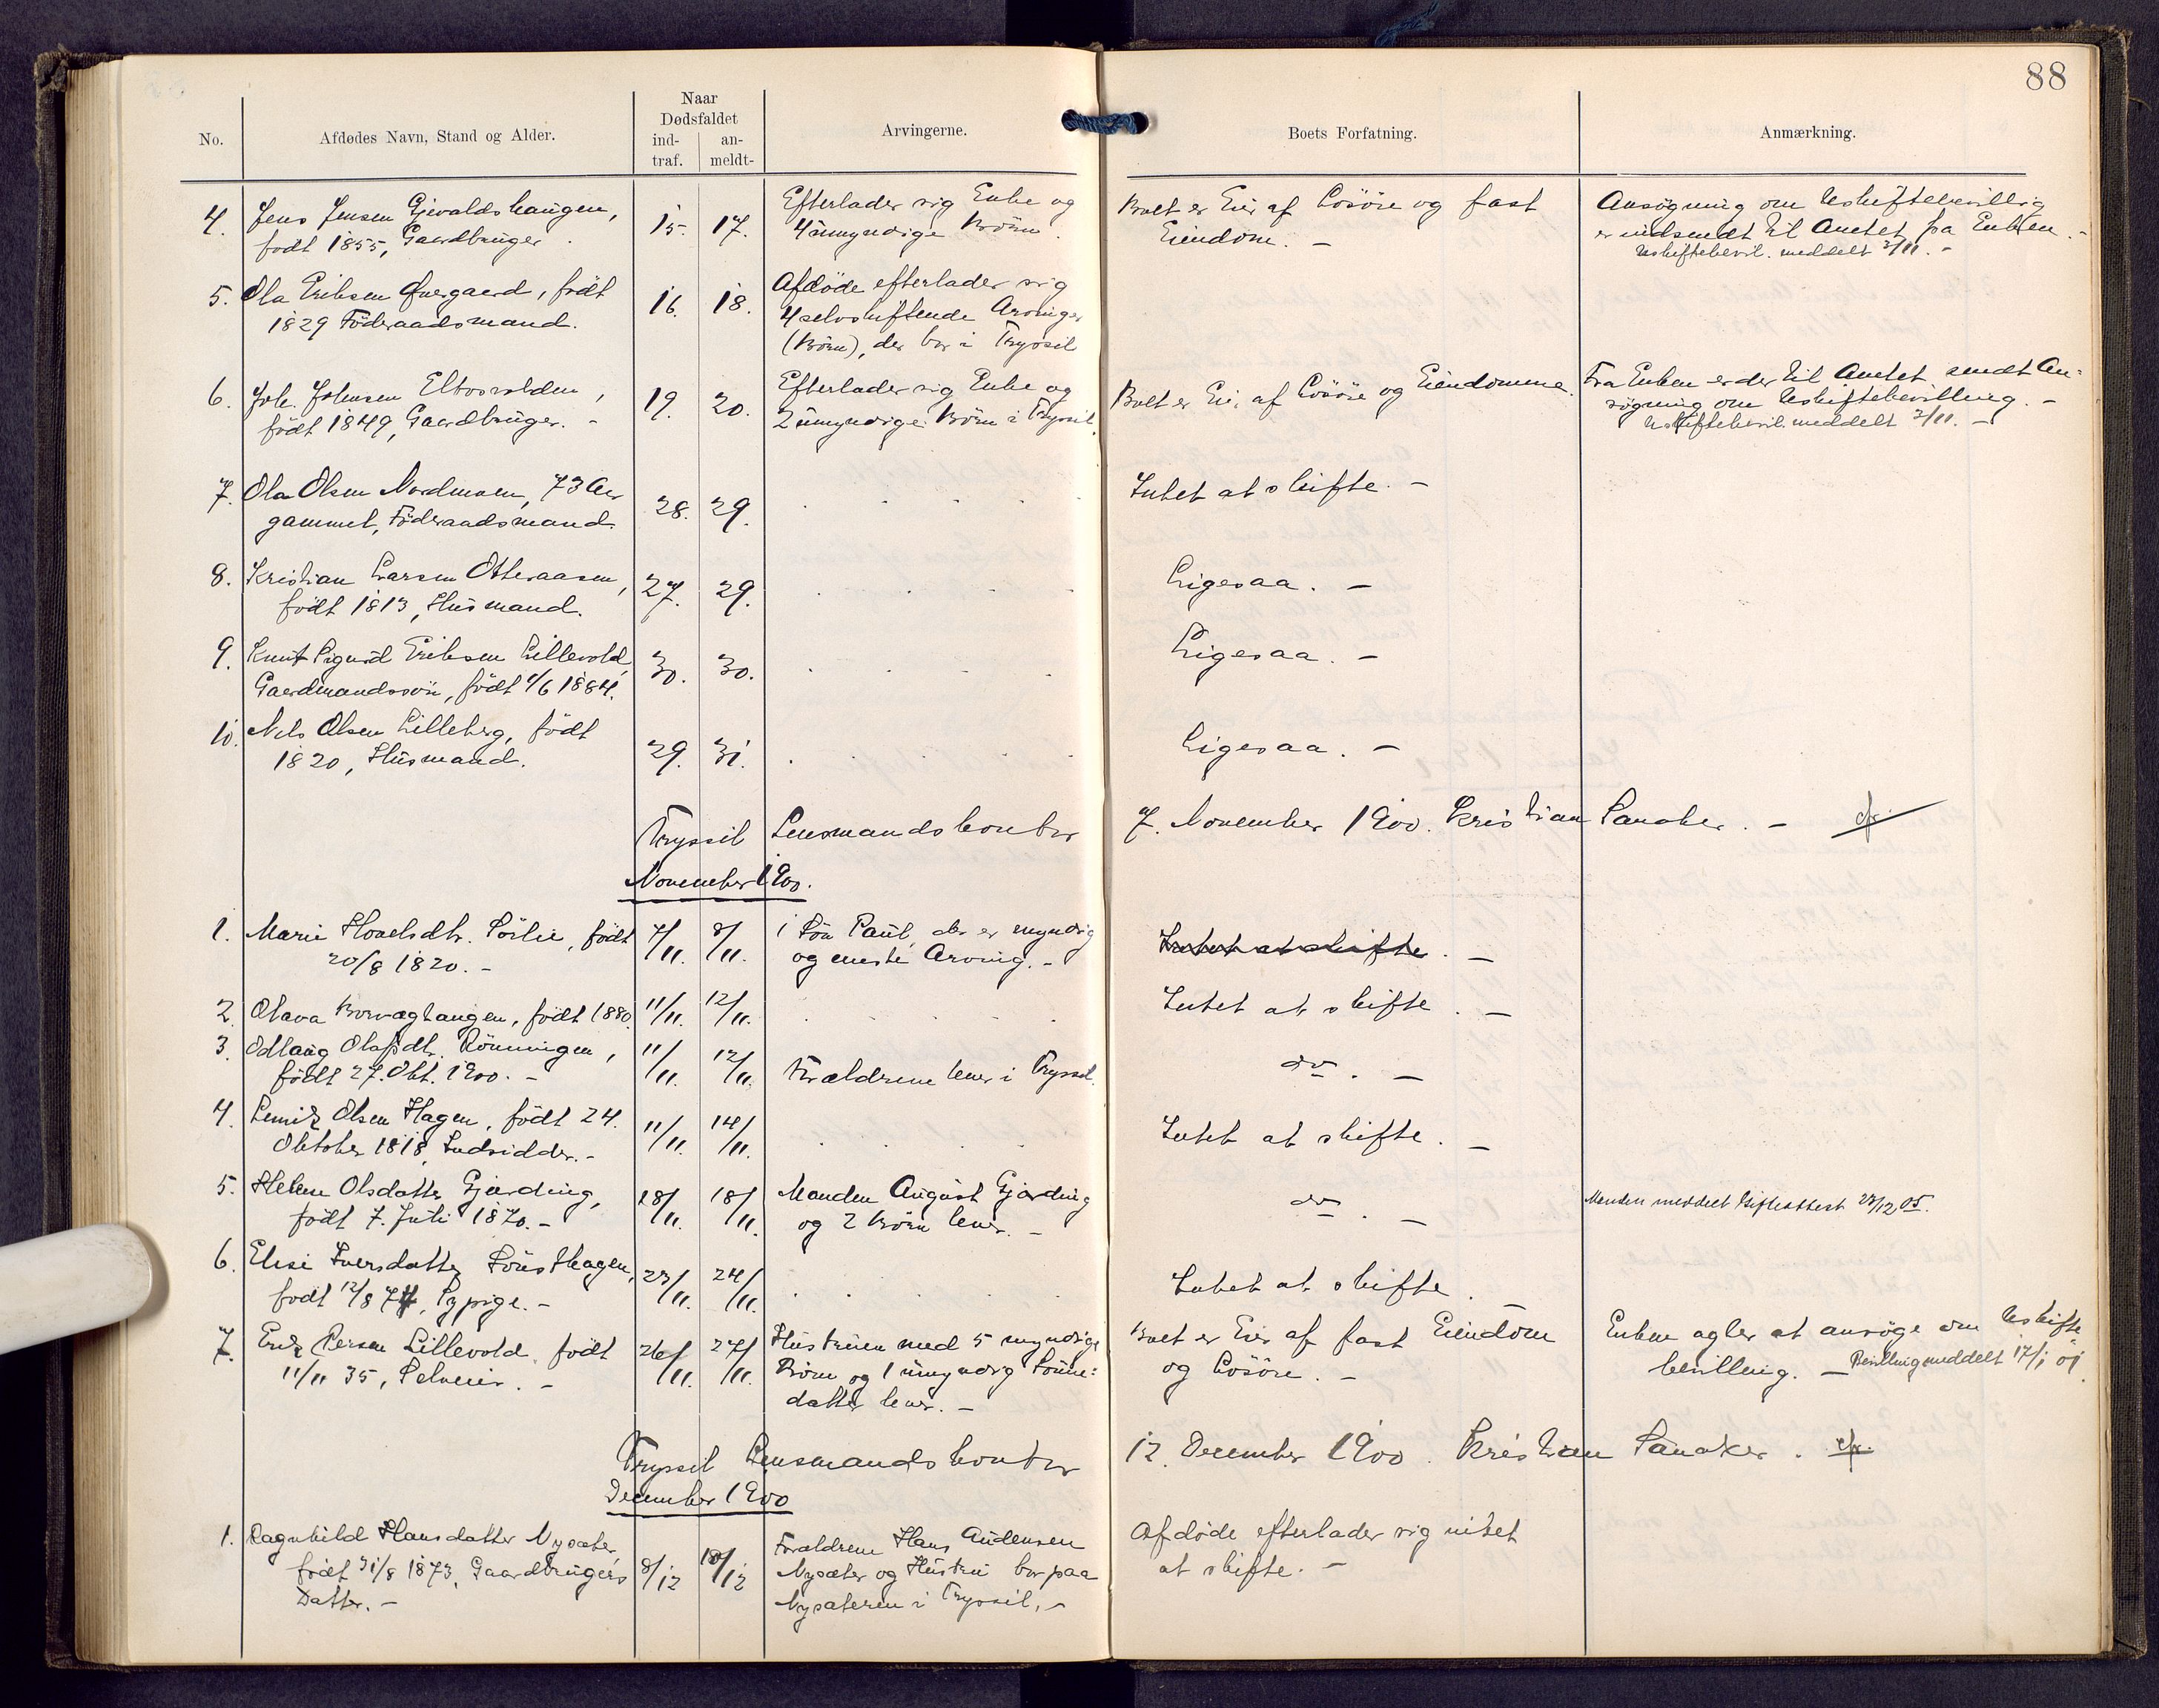 88
No.
Afdødes Navn, Stand og Alder.
Naar
Dødsfaldet
ind-
traf.
an-
meldt-
Arvingerne.
Boets Forfatning.
Anmærkning.
4. Jens Jensen Gjevaldshaugen, 15. 17. Efterlader sig Enke og Boet er Eier af Løsöre og fast Ansögning om Uskiftebevillig
födt 1855, Gaardbruger. 4 umyndige Börn. Eiendom. – er indsendt til Amtet fra Enken. –
Uskiftebevil. meddelt 3/11. –
5. Ola Eriksen Øvergaard, födt 16. 18. Afdöde efterlader sig
1829 Föderaadsmand. 4 selvskiftende Arvinger
(Börn), der bor i Trysil
6. Joh. Johnsen Eltvosvolden, 19. 20. Efterlader sig Enke og Boet er Eier af Lösöre og Eiendomme. Fra Enken er der til Amtet sendt An-
födt 1849, Gaardbruger. – 2 umyndige Börn i Trysil. sögning om Uskiftebevilling. –
Uskiftebevil. meddelt 3/11. –
7. Ola Olsen Nordmoen, 73 Aar 28. 29. Intet at skifte. –
gammel, Föderaadsmand.
8. Kristian Larsen Otteraasen, 27. 29. Ligesaa. –
födt 1813, Husmand.
9. Knut Sigurd Eriksen Lillevold, 30. 30. Ligesaa. –
Gaardmandssön, födt 4/6 1884.
10. Nils Olsen Lilleberg, födt 29. 31. Ligesaa. –
1820, Husmand.
Trysil Lensmandskontor 7. November 1900. Kristian Sanaker. –
November 1900.
1. Marie Hovelsdtr. Sörlie, födt 7/11. 8/11. 1 Sön Paul, der er myndig Intet at skifte. –
20/8 1820. – og eneste Arving. –
2. Olava födt 1880. 11/11. 12/11. Intet at skifte. –
3. Odlaug Olafsdtr. Rönningen, 11/11. 12/11. Forældrene lever i Trysil. do. –
födt 27. Okt. 1900. –
4. Olsen Hagen, födt 24. 11/11. 14/11. Intet at skifte. –
Oktober 1818, Indsidder. –
5. Helene Olsdatter Gjörding, 18/11. 18/11. Manden August Gjörding do. – Manden meddelt Skifteattest 23/12 05.
födt 7. Juli 1870. – og 2 Börn lever. –
6. Elise Iversdatter Hagen, 23/11. 24/11. Intet at skifte. –
födt 12/8 74, Sypige. –
7. Erik Persen Lillevold, födt 26/11. 27/11. Hustruen med 5 myndige Boet er Eier af fast Eiendom Enken agter at ansöge om Uskifte-
11/11 35, Selveier. – Börn og 1 umyndig Sönne- og Lösöre. – bevilling. – Bevilling meddelt 17/1 01.
datter lever. –
Trysil Lensmandskontor 12. December 1900. Kristian Sanaker.
December 1900
1. Ragnhild Hansdatter Nysæter, 8/12 10/12 Forældrene Hans Andersen Afdöde efterlader sig intet
födt 31/8 1873, Gaardbrugers Nysæter og Hustru bor paa at skifte. –
Datter. – Nysæteren i Trysil. –